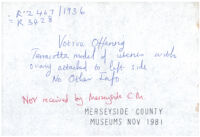 R*2467/1936
= R 3423
Votive Offering
Terracotta model of uterus with
ovary attached to left side
No Other Info
Not received by Merseyside C.M.
MERSEYSIDE COUNTY
MUSEUMS NOV 1981